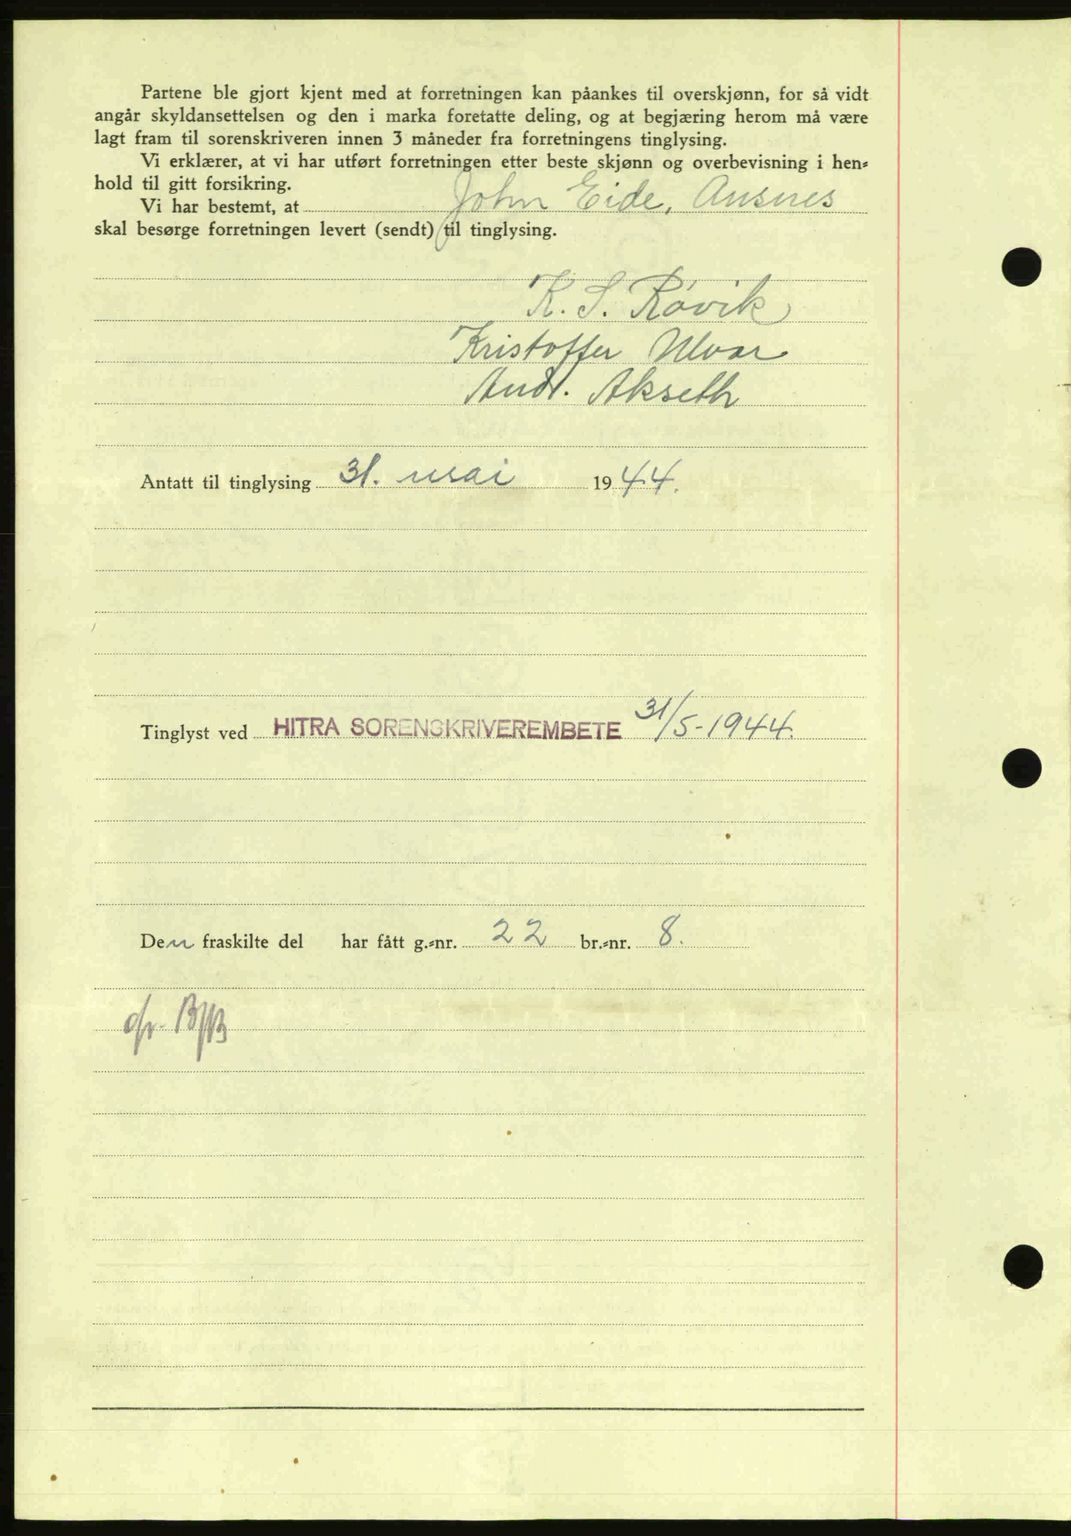 Partene ble gjort kjent med at forretningen kan påankes til overskjønn, for så vidt
angår skyldansettelsen og den i marka foretatte deling, og at begjæring herom må være
lagt fram til sorenskriveren innen 3 måneder fra forretningens tinglysing.
Vi erklærer, at vi har utført forretningen etter beste skjønn og overbevisning i hen-
hold til gitt forsikring.
Vi har bestemt, at John Eide, Ansnes
skal besørge forretningen levert (sendt) til tinglysing.
K. S. Røvik
Kristoffer Ulvan
Andr. Akseth
Antatt til tinglysing 31. mai 1944.
Tinglyst ved HITRA SORENSKRIVEREMBETE 31/5-1944.
Den fraskilte del har fått g.-nr. 22 br.-nr. 8.